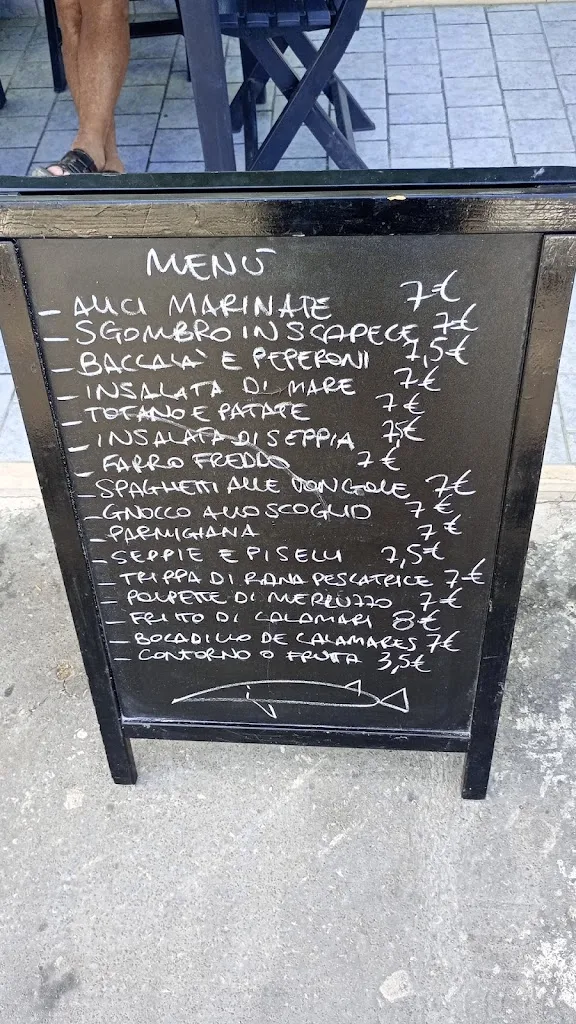 MENÙ
- ALICI MARINATE 7€
- SGOMBRO IN SCAPECE 7€
- BACCALA' E PEPERONI 7,5€
- INSALATA DI MARE 7€
- TOTANO E PATATE 7€
- INSALATA DI SEPPIA 7,5€
- FARRO FREDDO 7€
- SPAGHETTI ALLE VONGOLE 7€
- GNOCCO ALLO SCOGLIO 7€
- PARMIGIANA 7€
- SEPPIE E PISELLI 7,5€
- TRIPPA DI RANA PESCATRICE 7€
- POLPETE DI MERLUZZO 7€
- FRITO DI CALAMARI 8€
- BOCADILLO DE CALAMARES 7€
- CONTORNO O FRUTTA 3,5€